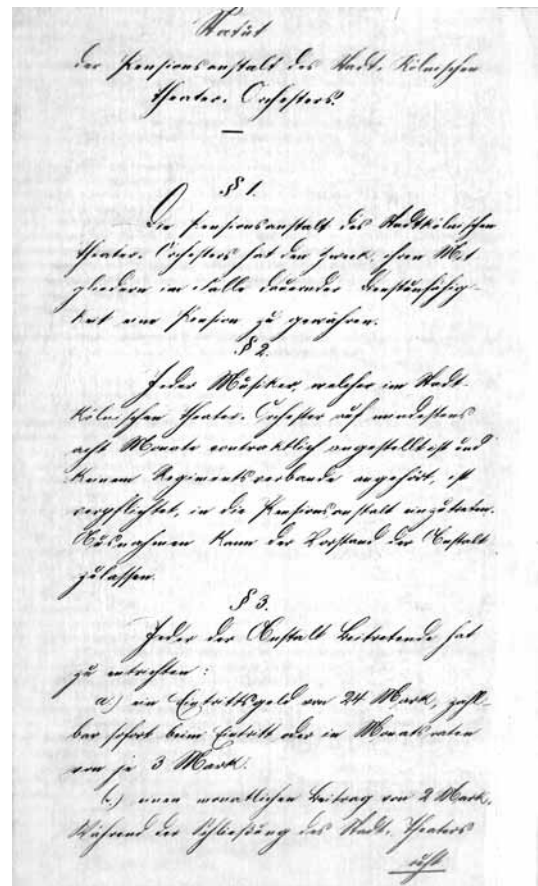 Statut
der Pensionsanstalt des Stadt. Kölnischen
Theater-Orchesters.
§ 1.
Die Pensionsanstalt des Stadtkölnischen
Theater-Orchesters hat den Zweck, ihren Mit
gliedern im Falle dauernder Dienstunfähig-
keit eine Pension zu gewähren.
§ 2.
Jeder Musiker, welcher im Stadt-
kölnischen Theater-Orchester auf mindestens
acht Monate contraktlich angestellt ist und
keinem Regimentsverbande angehört, ist
verpflichtet, in die Pensionsanstalt einzutreten.
Ausnahmen kann der Vorstand der Anstalt
zulassen.
§ 3.
Jeder der Anstalt Beitretende hat
zu entrichten:
a.) ein Eintrittsgeld von 24 Mark, zahl-
bar sofort beim Eintritt oder in Monatsraten
von je 3 Mark.
b.) einen monatlichen Beitrag von 2 Mark.
Während der Schließung des Stadt-Theaters
ruht